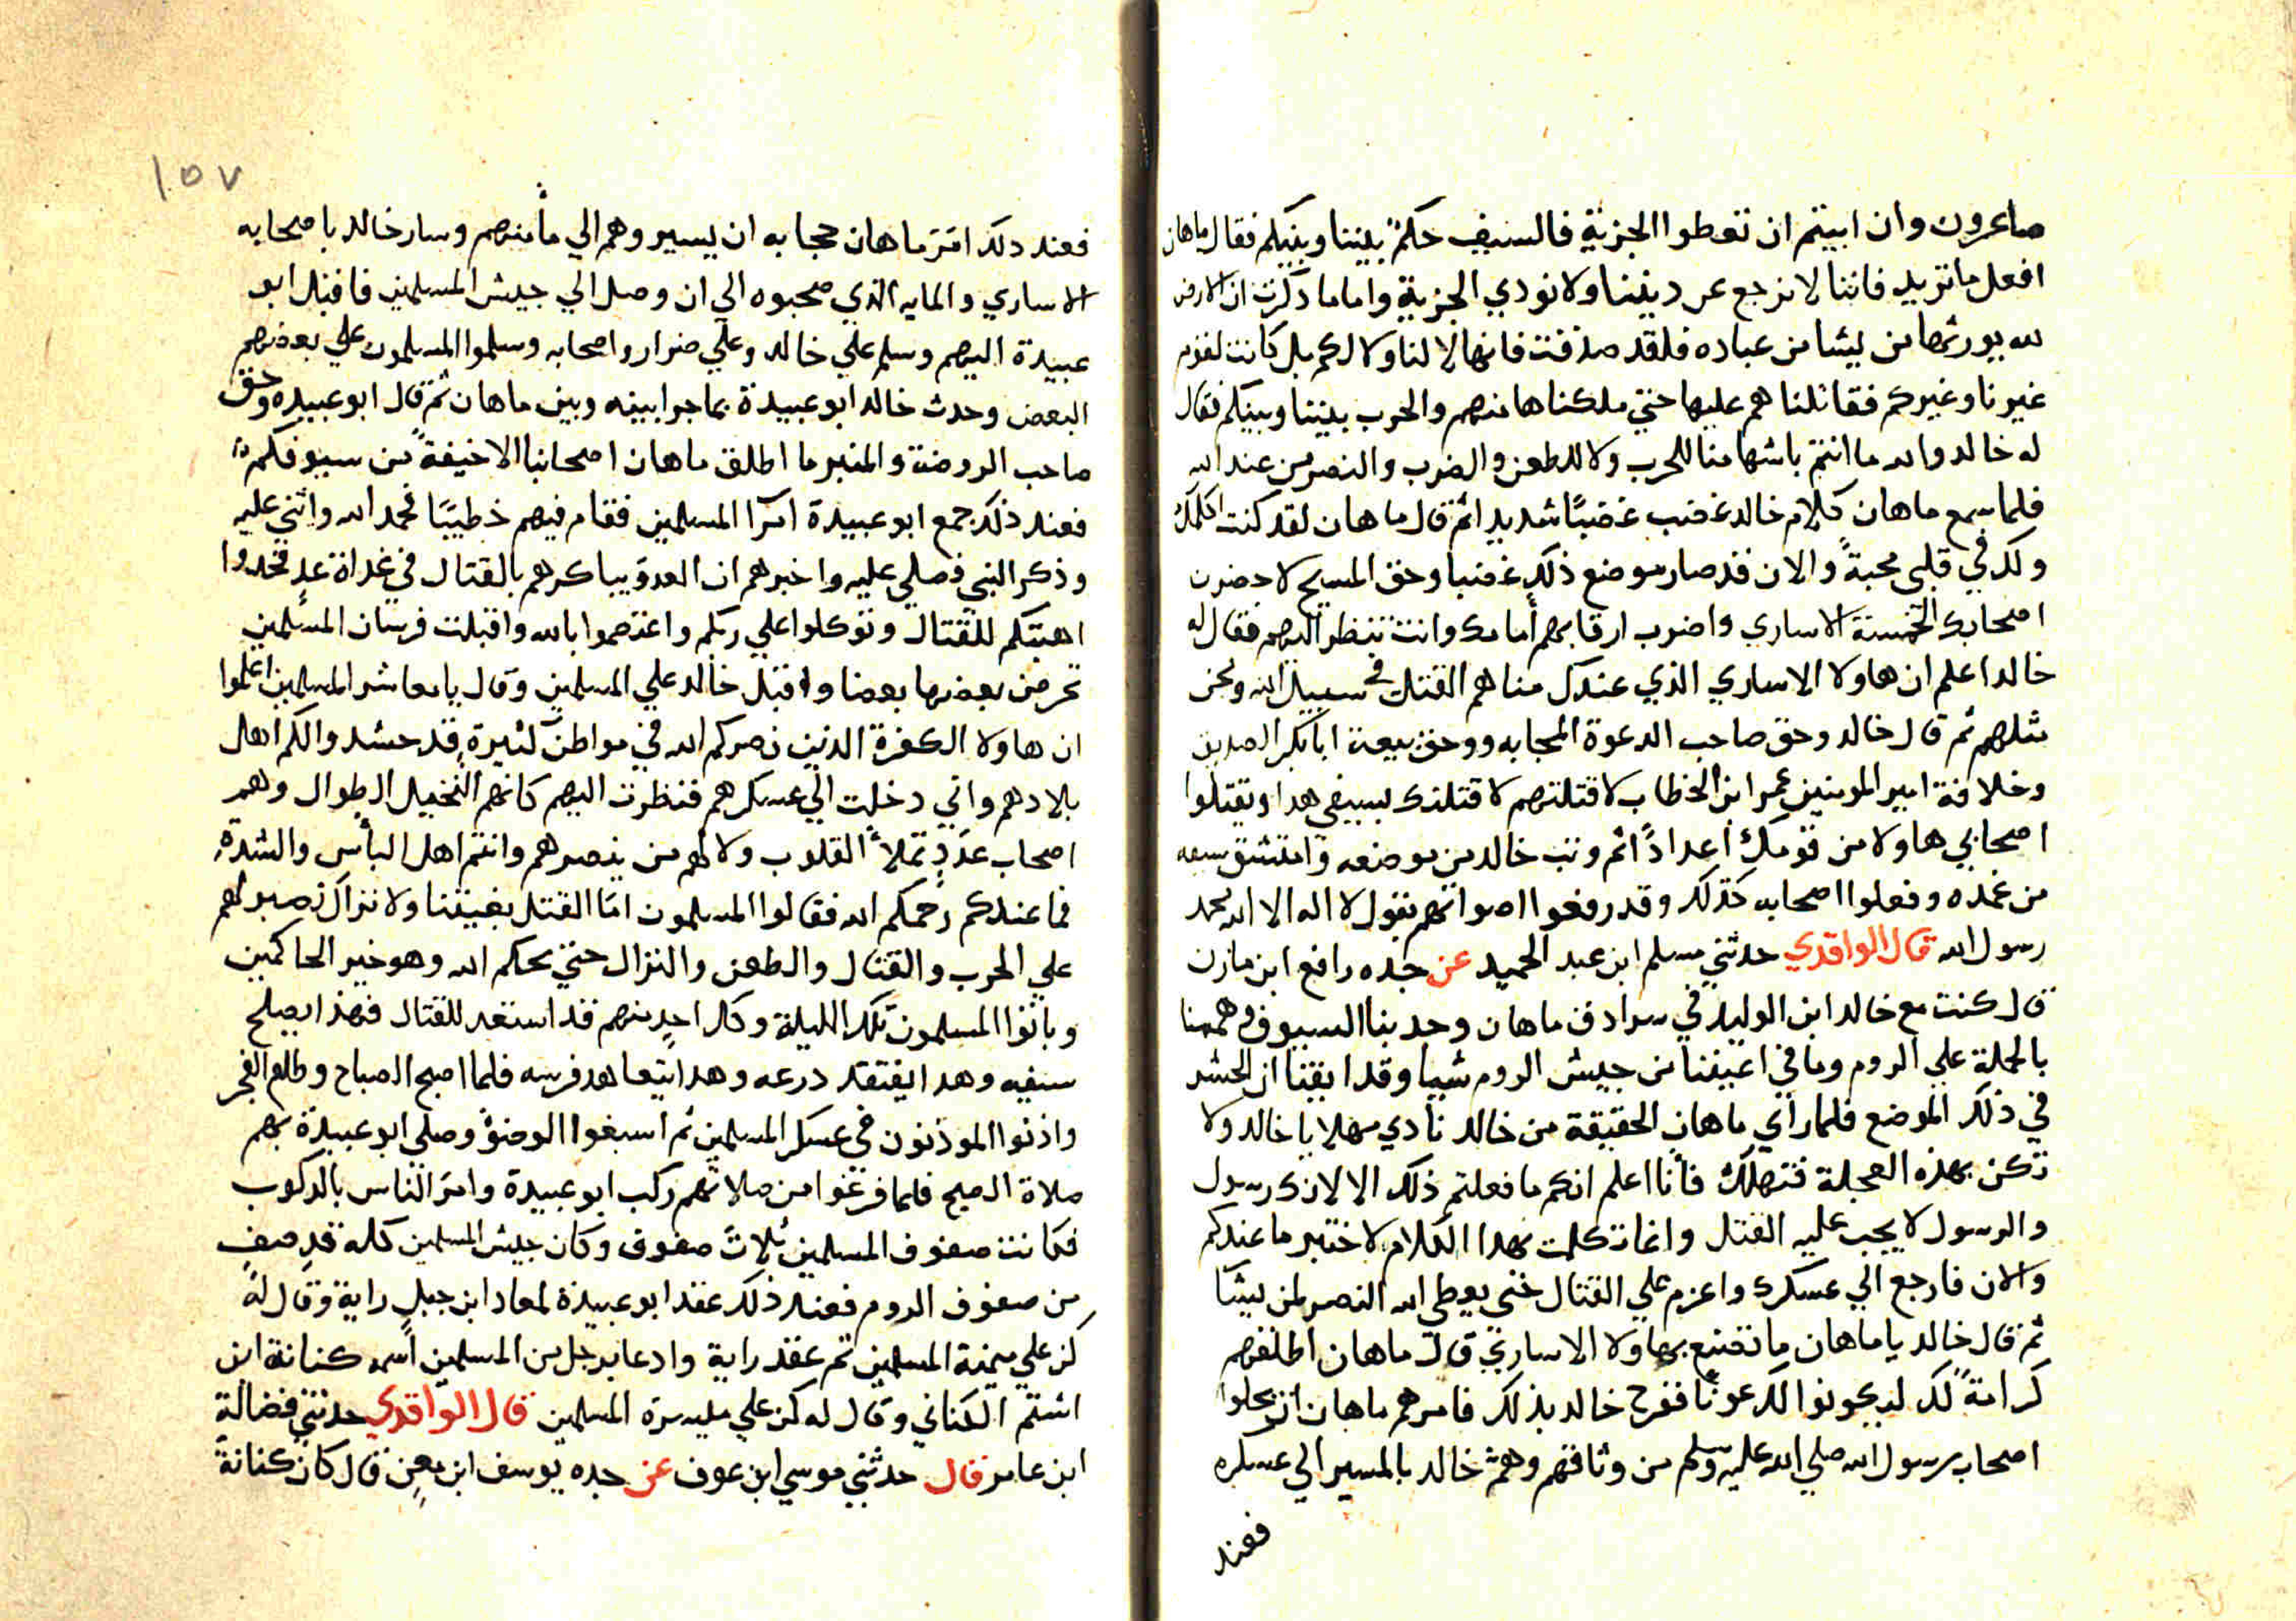 صاغرون وان ابيتم ان تعطوا الجزية فالسيف حكمٌ بيننا وبينكم فقال ماهان
افعل ما تريد فاننا لا نرجع عن ديننا ولا نودي الجزية واما ما ذكرت ان الارض
لله يورثها من يشا من عباده فلقد صدقت فانها لا لنا ولا لكم بل كانت لقوم
غيرنا وغيركم فقاتلناهم عليها حتي ملكناها منهم والحرب بيننا وبينكم فقال
له خالد والله ما انتم باشها منا للحرب ولا للطعن والضرب والنصر من عند الله
فلما سمع ماهان كلام خالد غضب غضبًا شديدا ثم قال ماهان لقد كنت اكلمك
ولك في قلبي محبةً والان قد صار موضع ذلك غضبا وحق المسيح لاحضرن
اصحابك الخمسة الاساري واضرب ارقابهم أمامك وانت تنظر اليهم فقال له
خالد اعلم ان هاولا الاساري الذي عندك مناهم القتل في سبيل الله ونحن
مثلهم ثم قال خالد وحق صاحب الدعوة المجابه ووحق بيعة ابا بكر الصديق
وخلافة امير المومنين عمر ابن الخطاب لا قتلتهم لا قتلنك بسيفي هدا ويقتلوا
اصحابي هاولا من قومك أعدادًا ثم وثب خالد من موضعه وامتشق سيفه
من غمده وفعلوا اصحابه كذلك وقد رفعوا اصواتهم بقول لا اله الا الله محمد
رسول الله قال الواقدي حدثني مسلم ابن عبد الحميد عن جده رافع ابن مازن
قال كنت مع خالد ابن الوليد في سرادق ماهان وجدبنا السيوف وهممنا
بالحملة علي الروم وما في اعيننا من جيش الروم شيا وقد ايقنا ان الحشر
في ذلك الموضع فلما رأي ماهان الحقيقة من خالد نادي مهلا يا خالد ولا
تكن بهذه العجلة فتهلك فأنا اعلم انكم ما فعلتم ذلك الا لانك رسول
والرسول لا يجب عليه القتل وانما تكلمت بهدا الكلام لاختبر ما عندكم
والان فارجع الي عسكرك واعزم علي القتال حتي يعطي الله النصر لمن يشا
ثم قال خالد يا ماهان ما تصنع بهاولا الاساري قال ماهان اطلقهم
كرامةً لك ليكونوا لك عونًا ففرح خالد بذلك فامرهم ماهان ان يحلوا
اصحاب رسول الله صلي الله عليه وسلم من وثاقهم وهمّ خالد بالمسير الي عسكره
فعند
١٥٧
فعند دلك امَرَ ماهان حجابه ان يسيروهم الي مأمنهم وسار خالد باصحابه
الاساري والمايه الذي صحبوه الي ان وصل الي جيش المسلمين فاقبل ابو
عبيدة اليهم وسلم علي خالد وعلي ضرار واصحابه وسلموا المسلمون علي بعضهم
البعض وحدث خالد ابو عبيدة بما جرا بينه وبين ماهان ثم قال ابو عبيده وحق
صاحب الروضة والمنبر ما اطلق ماهان اصحابنا الا خيفةً من سيوفكم
فعند ذلك جمع ابو عبيدة امرا المسلمين فقام فيهم خطيبًا فحمد الله واثني عليه
وذكر النبي فصلي عليه واخبرهم ان العدو يباكرهم بالقتال في غداة غدٍ فخدوا
اهبتكم للقتال وتوكلوا علي ربكم واعتصموا بالله واقبلت فرسان المسلمين
تحرض بعضها بعضا واقبل خالد علي المسلمين وقال يا معاشر المسلمين اعلموا
ان هاولا الكفرة الدين نصركم الله في مواطن كثيرة قد حشد والكم اهل
بلادهم واني دخلت الي عسكرهم فنظرت اليهم كانهم النخيل الطوال وهم
اصحاب عدَدٍ تملأ القلوب ولا لهم من ينصرهم وانتم اهل البأس والشدة
فما عندكم رحمكم الله فقالوا المسلمون امّا القتل بغيتنا ولا نزال نصبر لهم
علي الحرب والقتال والطعن والنزال حتي يحكم الله وهو خير الحاكمين
وباتوا المسلمون تلك الليلة وكل احدٍ منهم قد استعد للقتال فهذا يصلح
سيفه وهدا يفتقد درعه وهدا يتعاهد فرسه فلما اصبح الصباح وطلع الفجر
واذنوا الموذنون في عسكر المسلمين ثم اسبغوا الوضوْ وصلي ابو عبيدة بهم
صلاة الصبح فلما فرغوا من صلاتهم ركب ابو عبيدة وامرَ الناس بالركوب
فكانت صفوف المسلمين ثلاث صفوف وكان جيش المسلمين كله قدِ صفٍ
من صفوف الروم فعند ذلك عقد ابو عبيدة لمعاد ابن جبل راية وقال له
كن علي ميمنة المسلمين ثم عقد راية وادعا برجل من المسلمين اسمه كنانة ابن
اشتم الكناني وقال له كن علي ميسرة المسلمين قال الواقدي حدثني فضالة
ابن عامر قال حدثني موسي ابن عوف عن جده يوسف ابن معن قال كان كنانة